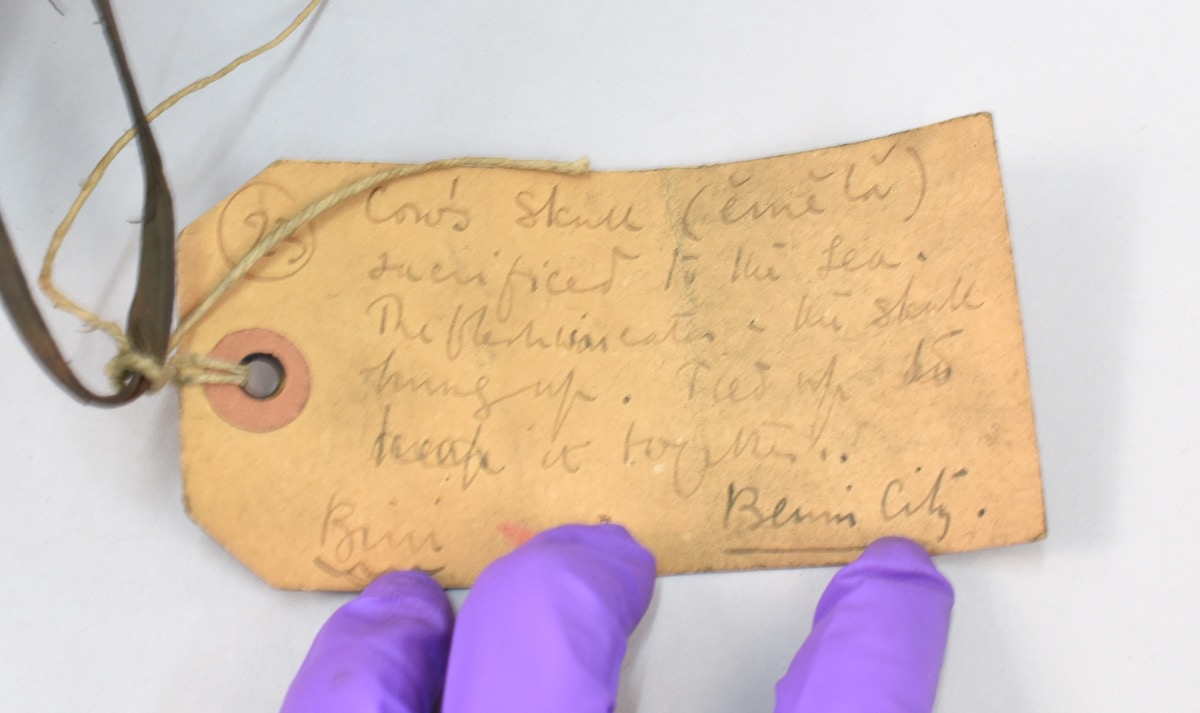 23 Cow's Skull (ĕmĕlă)
sacrificed to the Sea.
The flesh was eaten & the skull
hung up. Tied up to
keep it together.
Bini
Benin City.